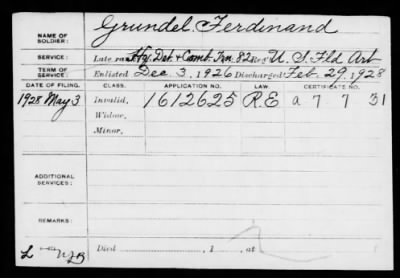 NAME OF SOLDIER: Grundel, Ferdinand
SERVICE: Late rank Hq. Det. & Comb. Trn. 82 Reg't U. S. Fld Art
TERM OF SERVICE: Enlisted Dec. 3, 1926 Discharged Feb. 29, 1928
DATE OF FILING. CLASS. APPLICATION NO. LAW. CERTIFICATE NO.
1928 May 3 Invalid, 1612625 R.E a 7 7 31
Widow,
Minor,
ADDITIONAL SERVICES:
REMARKS:
L
Died , 1 , at